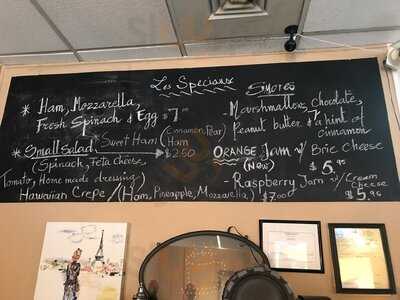 Les Speciaux
* Ham, Mozzarella,
Fresh Spinach & Egg $7.00
* Small Salad
(Spinach, Feta Cheese,
Tomato, Home made dressing)
Sweet Ham (Cinnamon, Pear)
Ham
$2.50
Hawaiian Crepe / (Ham, Pineapple, Mozzarella) $7.00
Smores
Marshmallows, Chocolate,
Peanut butter & a hint of
cinnamon
ORANGE Jam w/ Brie Cheese
(New) $5.95
Raspberry Jam w/ Cream
Cheese
$5.95